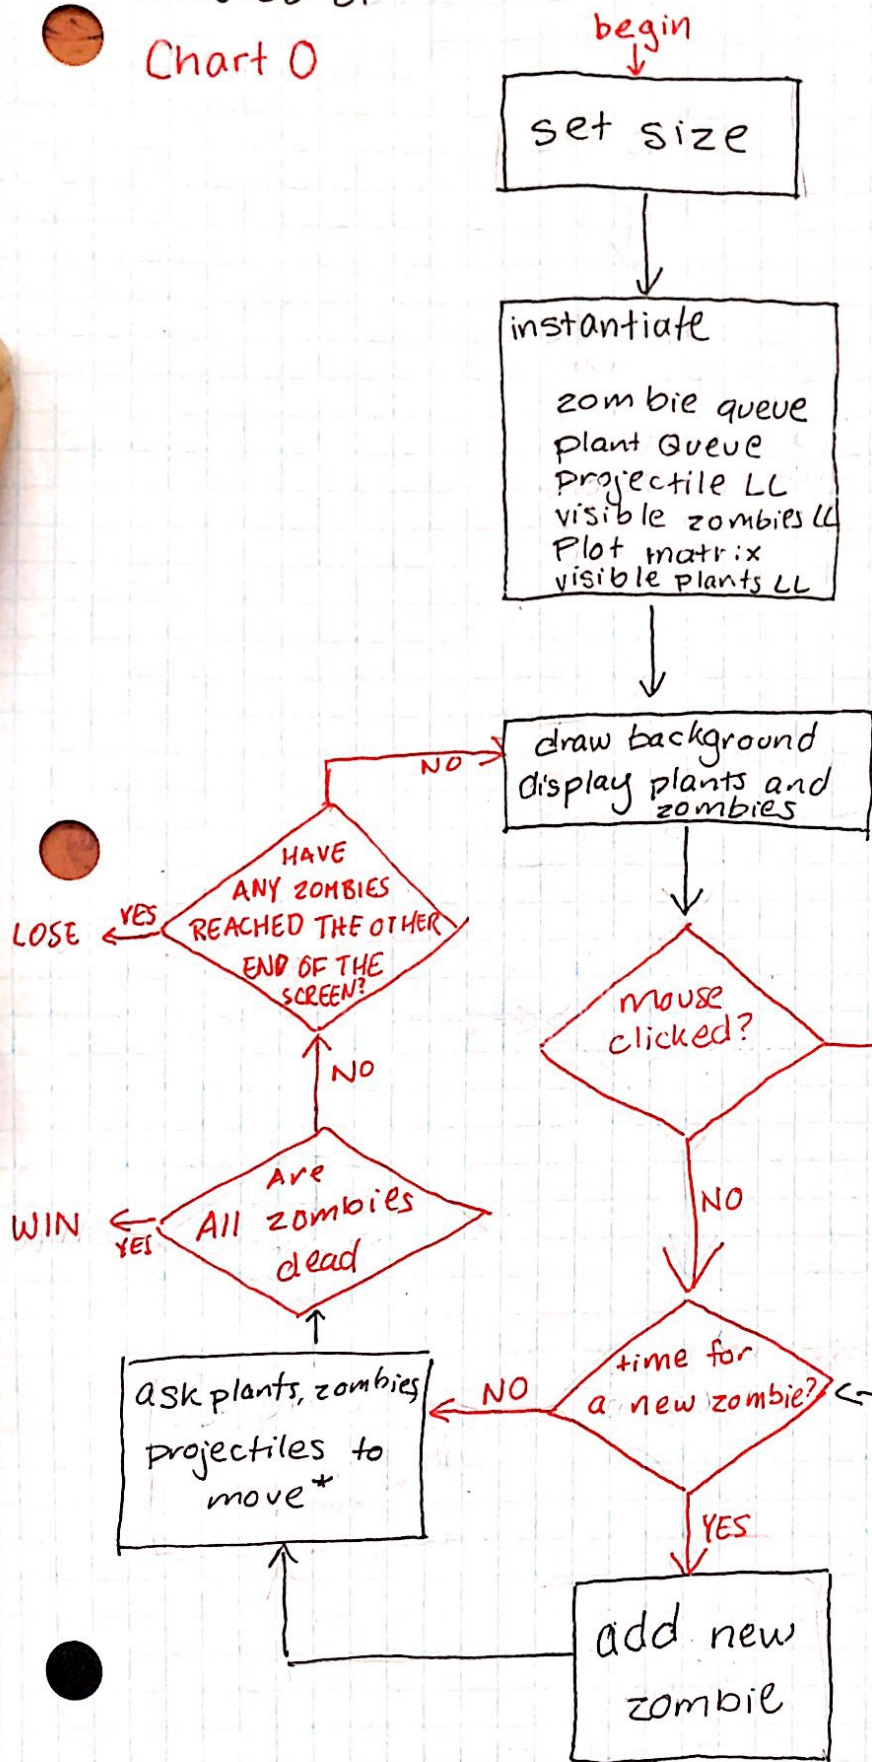 Chart 0
begin
set size
instantiate
zombie queue
plant Queue
projectile LL
visible zombies LL
Plot matrix
visible plants LL
draw background
display plants and
zombies
NO
HAVE
ANY ZOMBIES
REACHED THE OTHER
END OF THE
SCREEN?
YES
LOSE
mouse
clicked?
NO
NO
Are
All zombies
dead
YES
WIN
time for
a new zombie?
NO
ask plants, zombies,
projectiles to
move*
YES
add new
zombie